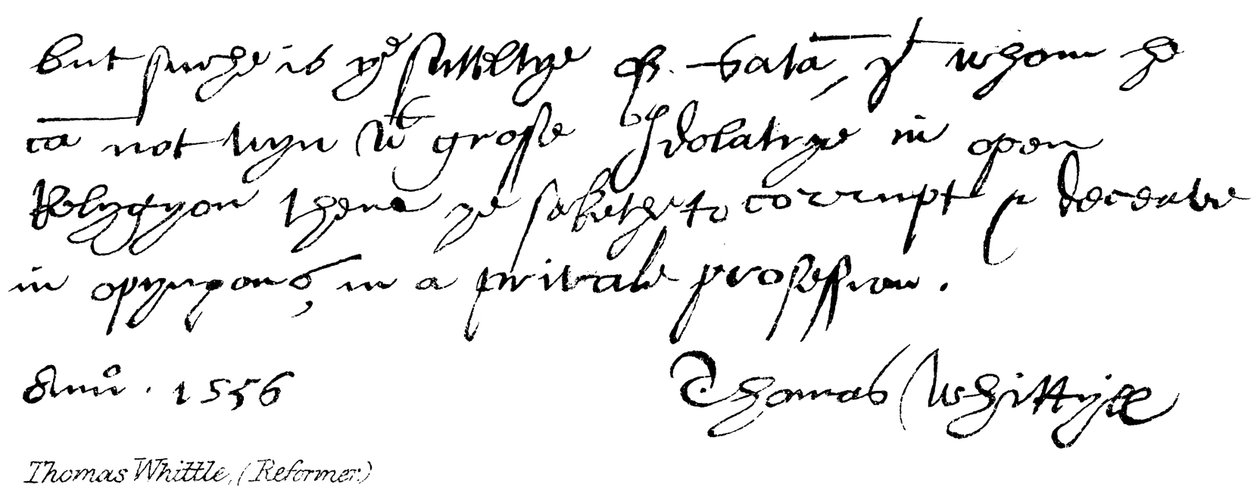 but suche is yᵉ sutteltye of Satā, yᵗ whom he
cā not wyn wᵗ grosse ydolatrye in open
Relygyon them he seketh to corrupt & deceave
in opynyons, in a private professyon.
Anno . 1556 Thomas Whittyll
Thomas Whittle, (Reformer.)